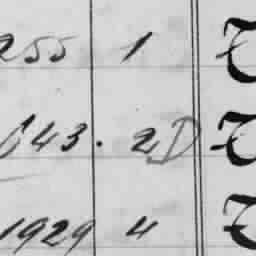 255 1
643. 2 D
1929 4